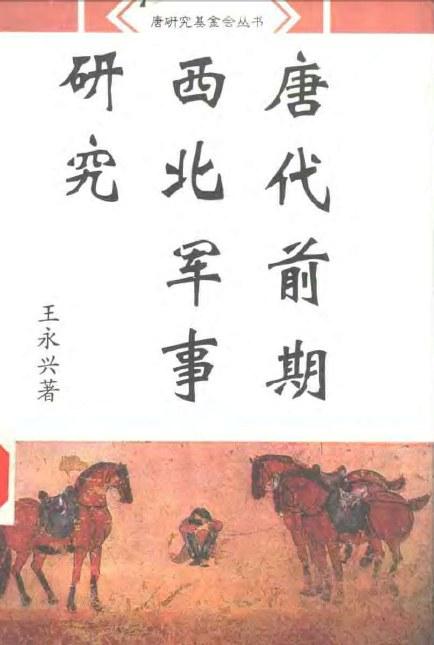 唐研究基金会丛书
唐代前期
西北军事
研究
王永兴著